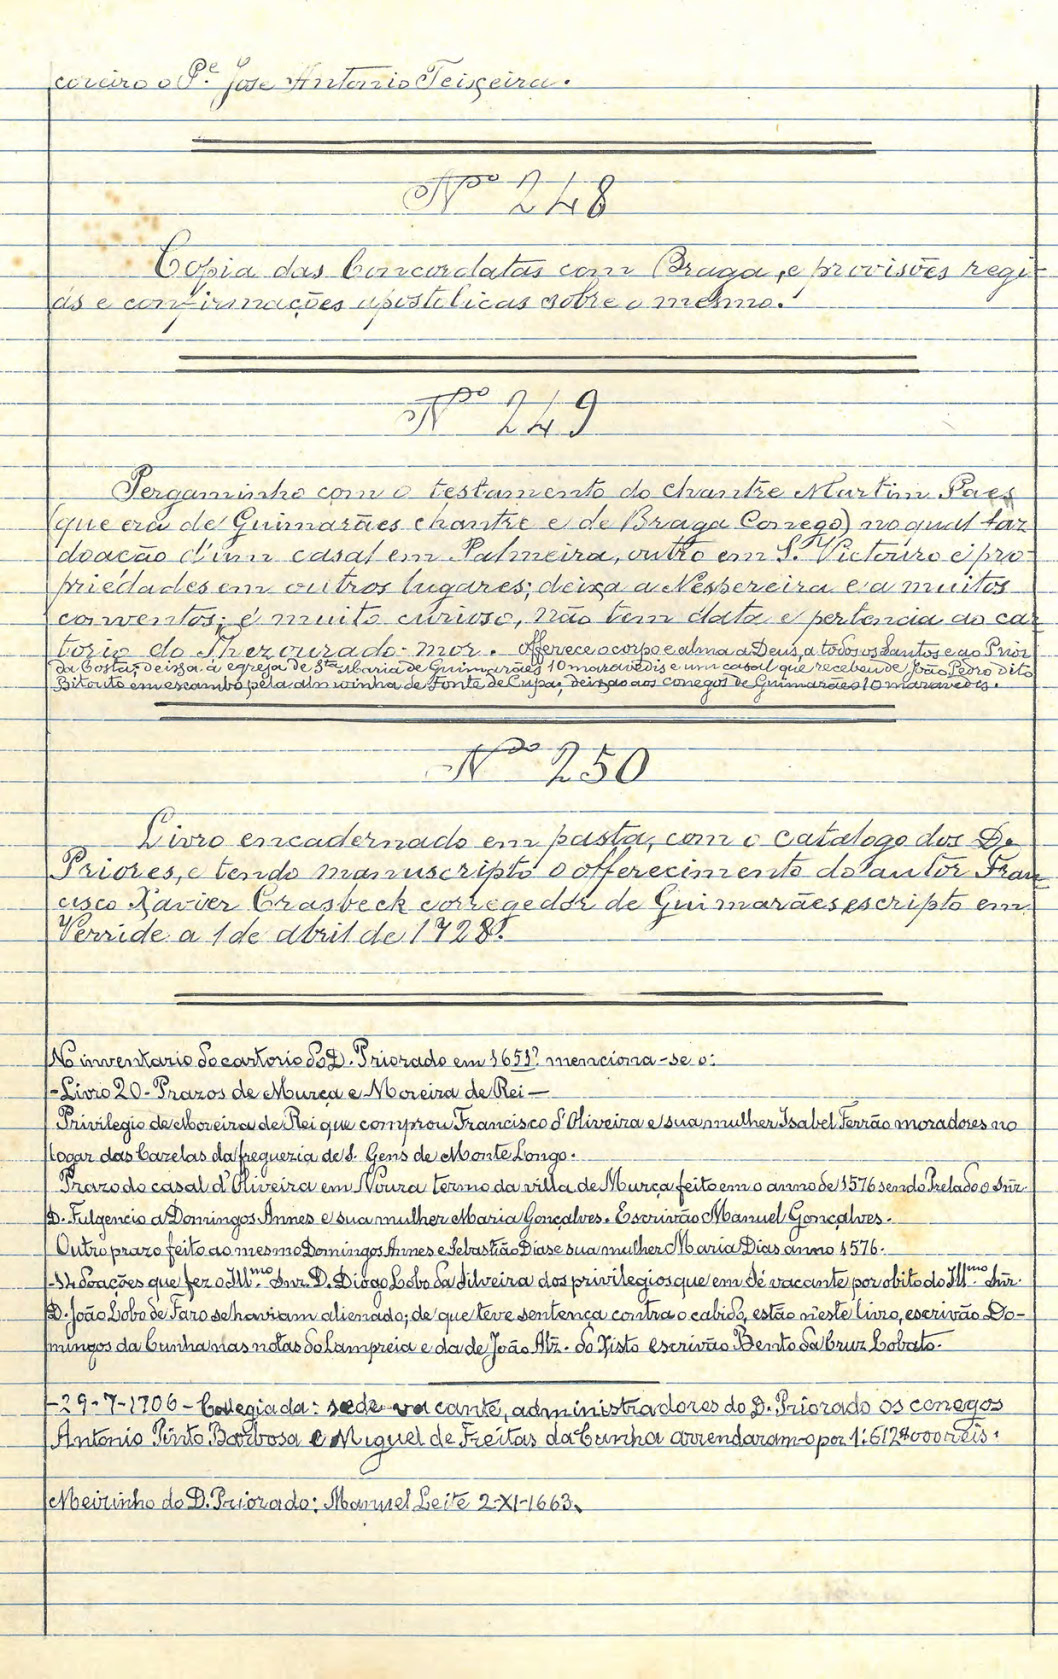 coreiro o P.e Jose Antonio Teixeira.
Nº 248
Copia das Concordatas com Braga, e provisões regi-
ás e confirmações apostolicas sobre o mesmo.
Nº 249
Pergaminho com o testamento do chantre Martim Paes
(que era de Guimarães chantre e de Braga Conego) no qual faz
doacão d'um casal em Palmeira, outro em S. Victouro e pro-
priedades em outros lugares; deixa a Nespereira e a muitos
conventos; é muito curioso, não tem data e pertencia ao car
torio do Thezourado-mor. Offerece o corpo e alma a Deus, a todos os Santos e ao Prior
da Costa; deixa á egreja de Sta Maria de Guimarães 10 maravedis e um casal que recebeu de João Pedro dito
Bitouto em escambo pela almuinha de Fonte de Cupa; deixa aos conegos de Guimarães 10 maravedis.
Nº 250
Livro encadernado em pasta, com o catalogo dos D.
Priores, e tendo manuscripto o offerecimento do autor Fran
cisco Xavier Crasbeck corregedor de Guimarães escripto em
Verride a 1 de abril de 1728.
No inventario do cartorio do D. Priorado em 1651? menciona-se o:
-Livro 20- Prazos de Murça e Moreira de Rei—
Privilegio de Moreira de Rei que comprou Francisco d'Oliveira e sua mulher Isabel Ferrão moradores no
logar das Cazelas da freguezia de S. Gens de Monte Longo.
Prazo do casal d'Oliveira em Noura termo da villa de Murça feito em o anno de 1576 sendo Prelado o Snr.
D. Fulgencio a Domingos Annes e sua mulher Maria Gonçalves. Escrivão Manuel Gonçalves.
Outro prazo feito ao mesmo Domingos Annes e Sebastião Dias e sua mulher Maria Dias anno 1576.
doações que fez o Ill.mo Snr. D. Diogo Lobo da Silveira dos privilegios que em Sé vacante por obito do Ill.mo Snr.
D. João Lobo de Faro se haviam alienado; de que teve sentença contra o cabido, estão n'este livro, escrivão Do-
mingos da Cunha nas notas do Lampreia e da de João Alz. do Xisto escrivão Bento da Cruz Lobato.
-29-7-1706- Colegiada: sede vacante, administradores do D. Priorado os conegos
Antonio Pinto Barbosa e Miguel de Freitas da Cunha arrendaram-o por 1:612$000 reis.
Meirinho do D. Priorado: Manuel Leite 2-XI-1663.